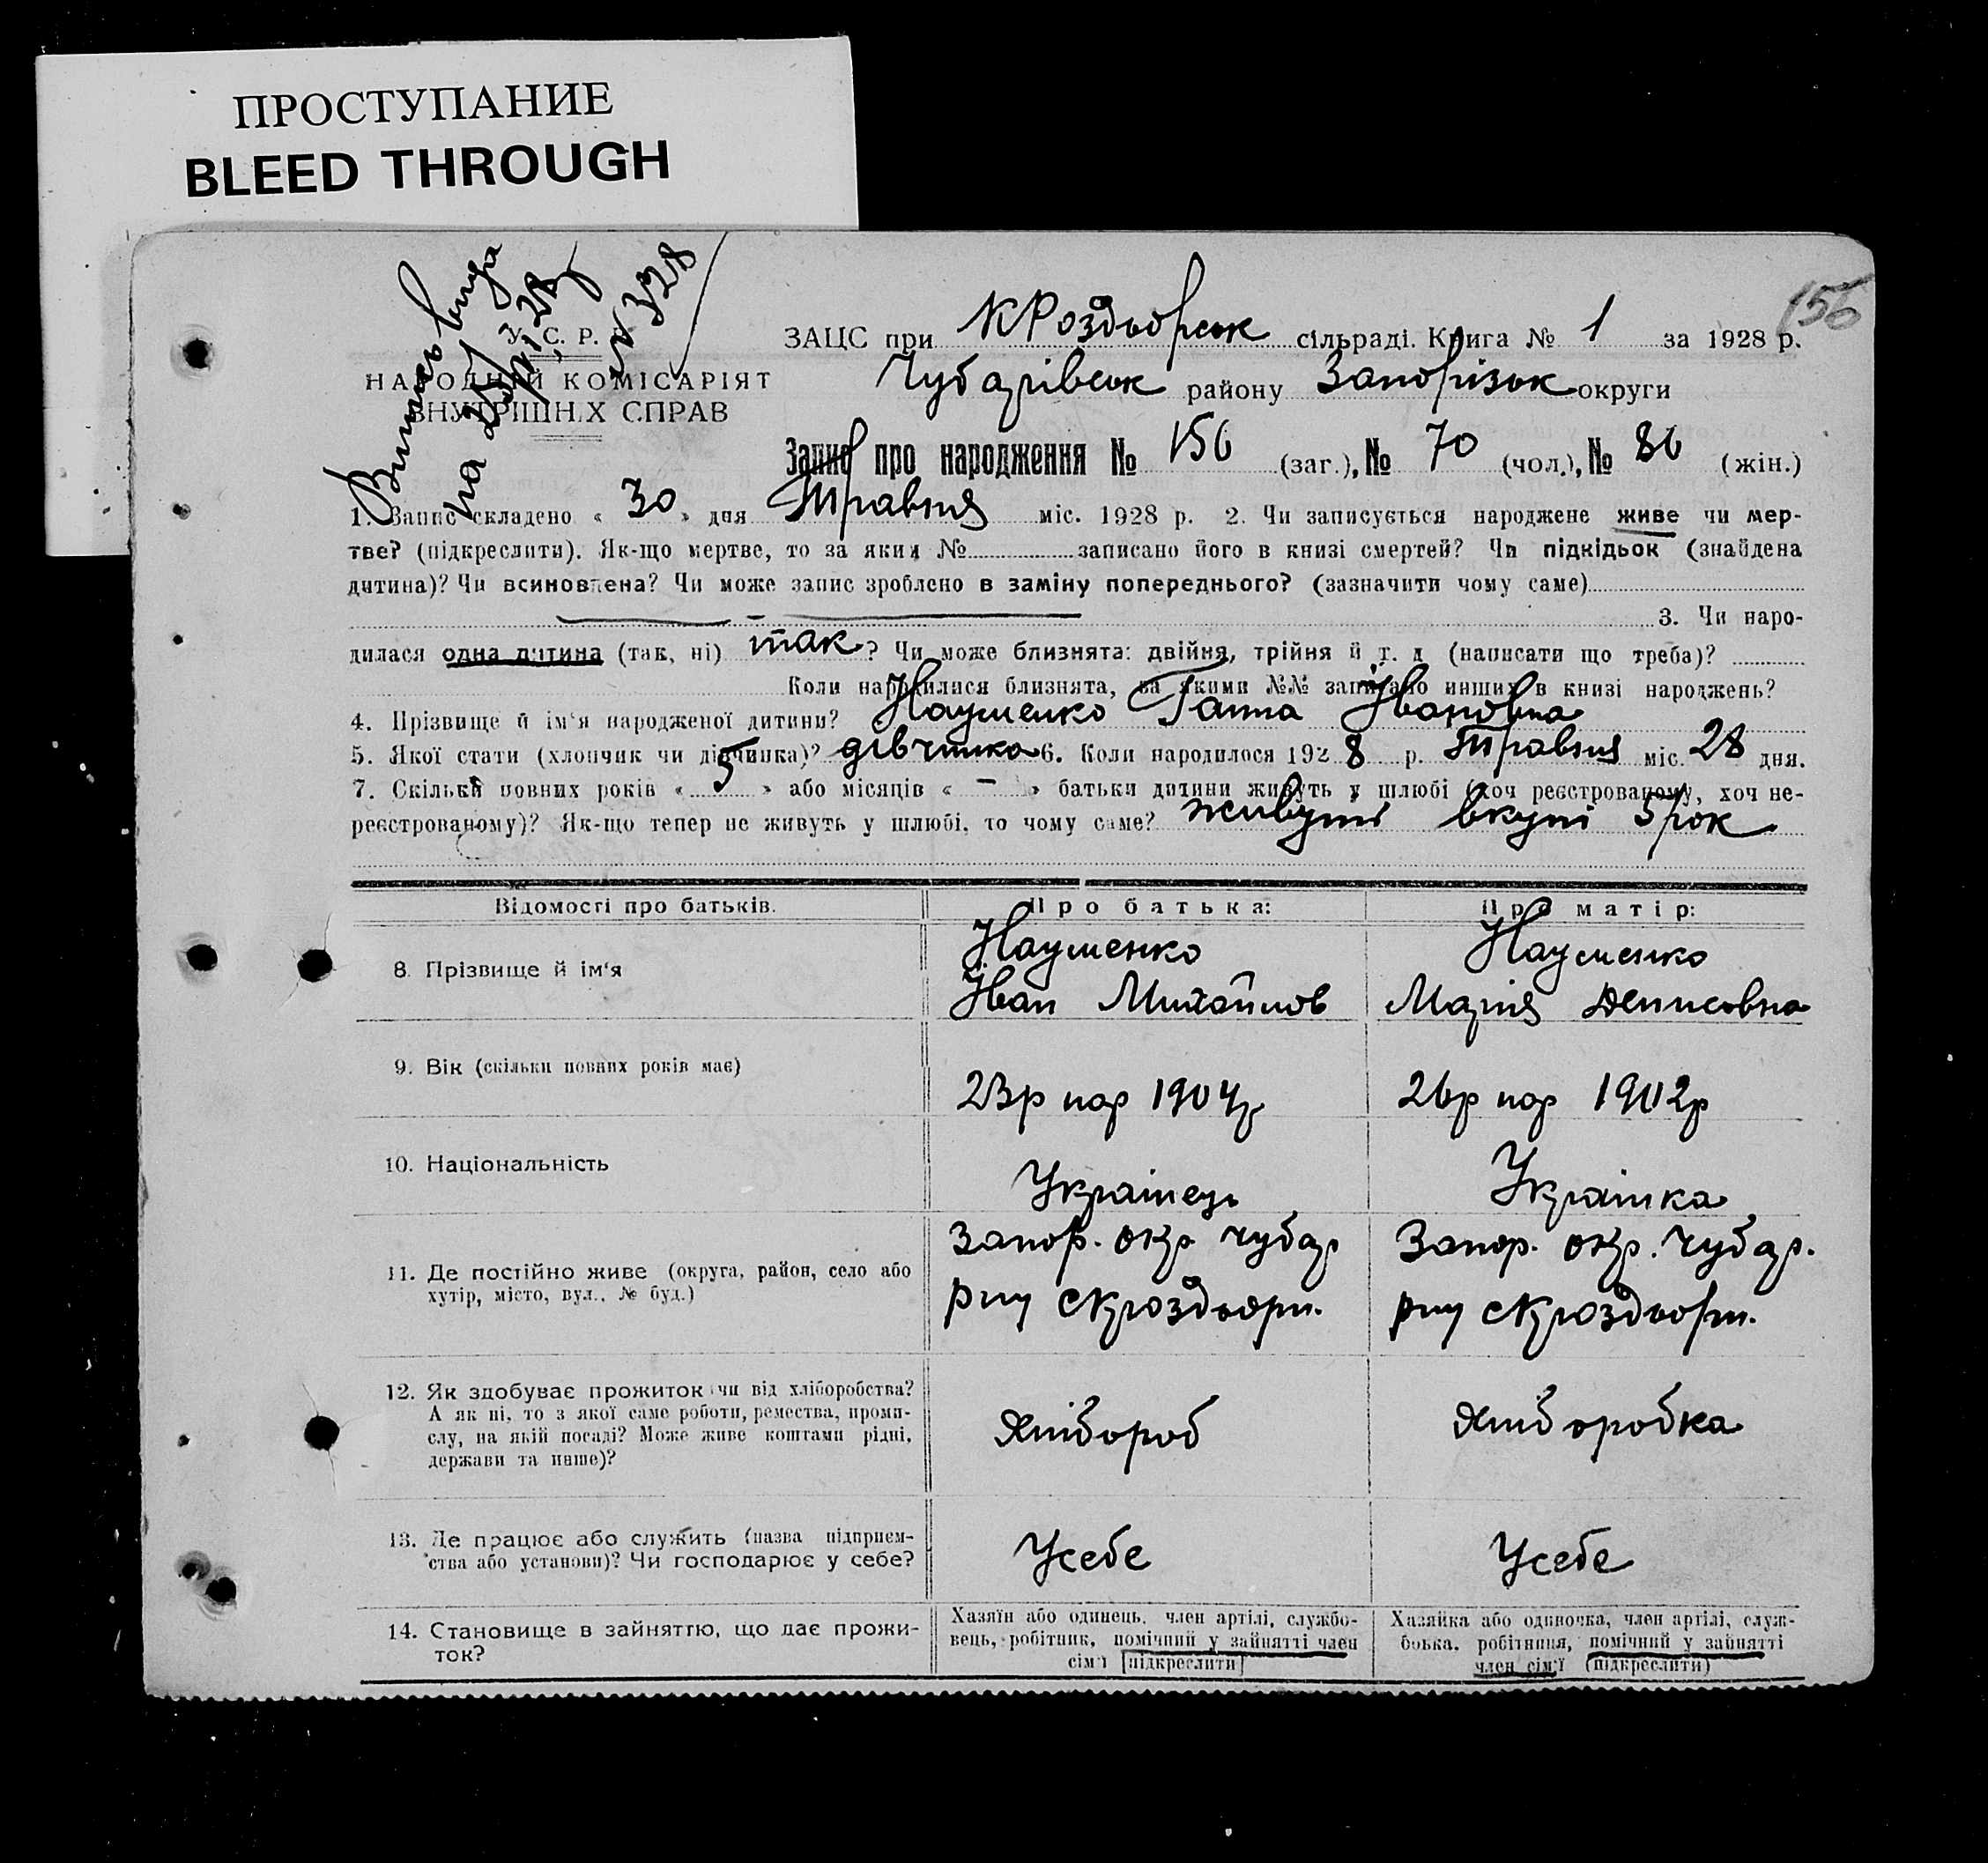 ПРОСТУПАНИЕ
BLEED THROUGH
156
Випись вида
на
№ 328
У. С. Р. Р.
НАРОДНІЙ КОМІСАРІЯТ
ВНУТРІШНІХ СПРАВ
ЗАЦС при КРоздьорськ сільраді. Книга № 1 за 1928 р.
Чубарівськ району Запорізьк округи
Запис про народження № 156 (заг.), № 70 (чол.), № 86 (жін.)
1. Запис складено « 30 » дня Травня міс. 1928 р. 2. Чи записується народжене живе чи мер-
тве? (підкреслити). Як-що мертве, то за яким № записано його в книзі смертей? Чи підкідьок (знайдена
дитина)? Чи всиновлена? Чи може запис зроблено в заміну попереднього? (зазначити чому саме)
3. Чи наро-
дилася одна дитина (так, ні) так ? Чи може близнята: двійня, трійня й т. д (написати що треба)?
Коли народилися близнята, за якими №№ записано инших в книзі народжень?
4. Прізвище й ім‘я народженої дитини? Науменко Ганна Івановна
5. Якої стати (хлопчик чи дівчинка)? дівчинка 6. Коли народилося 1928 р. Травня міс. 28 дня.
7. Скільки повних років « 5 » або місяців « – » батьки дитини живуть у шлюбі (хоч реєстрованому, хоч не-
реєстрованому)? Як-що тепер не живуть у шлюбі, то чому саме? живуть вкупі 5 рок
Відомості про батьків. Про батька: Про матір:
8. Прізвище й ім‘я Науменко Науменко
Іван Михайлов Марія Денисовна
9. Вік (скільки повних років має)
23р нар 1904р 26р нар 1902р
10. Національність
Українець Українка
Запор. окр чубар Запор. окр. чубар.
11. Де постійно живе (округа, район, село або
хутір, місто, вул., № буд.)
рну скроздьорн. рну скроздьорн.
12. Як здобуває прожиток чи від хліборобства?
А як ні, то з якої саме роботи, ремества, проми-
слу, на якій посаді? Може живе коштами рідні,
держави та инше)?
Хлібороб Хліборобка
13. Де працює або служить (назва підприєм-
ства або установи)? Чи господарює у себе?
Усебе Усебе
14. Становище в зайняттю, що дає прожи-
ток?
Хазяїн або одинець, член артілі, службо-
вець, робітник, помічний у зайнятті член
сім‘ї (підкреслити)
Хазяйка або одиночка, член артілі, служ-
бовка, робітниця, помічний у зайнятті
член сім‘ї (підкреслити)